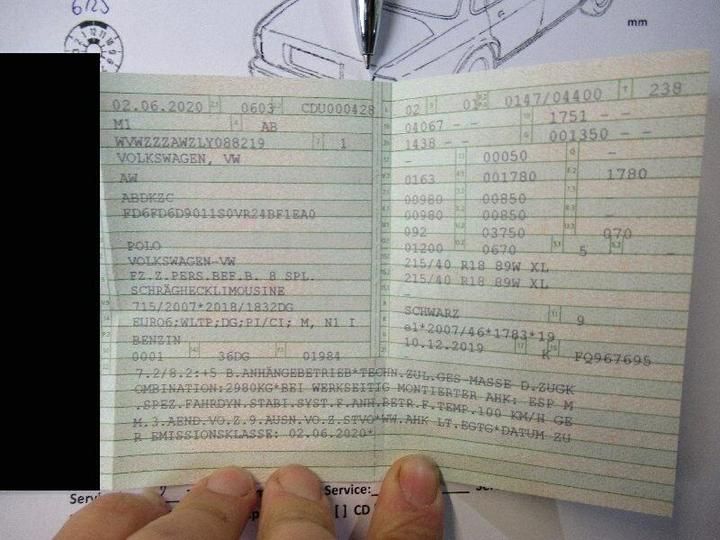 6123
mm
02.06.2020 0603 CDU000428
M1 AB
WVWZZZAWZLY088219 1
VOLKSWAGEN, VW
AW
ABDKZC
FD6FD6D9011S0VR24BF1EA0
POLO
VOLKSWAGEN-VW
FZ.Z.PERS.BEF.B. 8 SPL.
SCHRÄGHECKLIMOUSINE
715/2007*2018/1832DG
EURO6;WLTP;DG;PI/CI; M, N1 I
BENZIN
0001 36DG 01984
02 01 0147/04400 T 238
04067 - - 1751 - -
1438 - - 001350 - -
- 00050 -
0163 001780 1780
00980 00850
00980 00850
092 03750 070
01200 0670 5 -
215/40 R18 89W XL
215/40 R18 89W XL
-
SCHWARZ 9
e1*2007/46*1783*19
10.12.2019 K FQ967695
7.2/8.2:+5 B.ANHÄNGEBETRIEB*TECHN.ZUL.GES-MASSE D.ZUGK
OMBINATION:2980KG*BEI WERKSEITIG MONTIERTER AHK: ESP M
.SPEZ.FAHRDYN.STABI.SYST.F.ANH.BETR.F.TEMP.100 KM/H GE
M.3.AEND.VO.Z.9.AUSN.VO.Z.STVO*WW.AHK LT.EGTG*DATUM ZU
R EMISSIONSKLASSE: 02.06.2020*
Servi Service:
[ ] CD